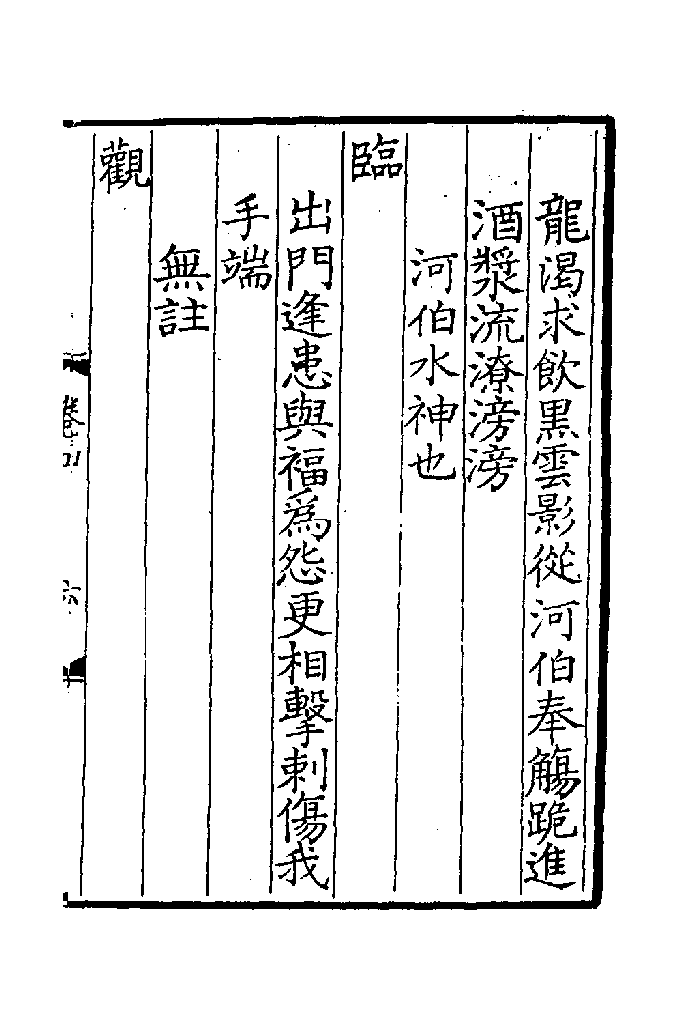 龍渴求飲黒雲影從河伯奉觴跪進
酒漿流潦滂滂
河伯水神也
臨
出門逢患與福為怨更相擊刺傷我
手端
無註
觀